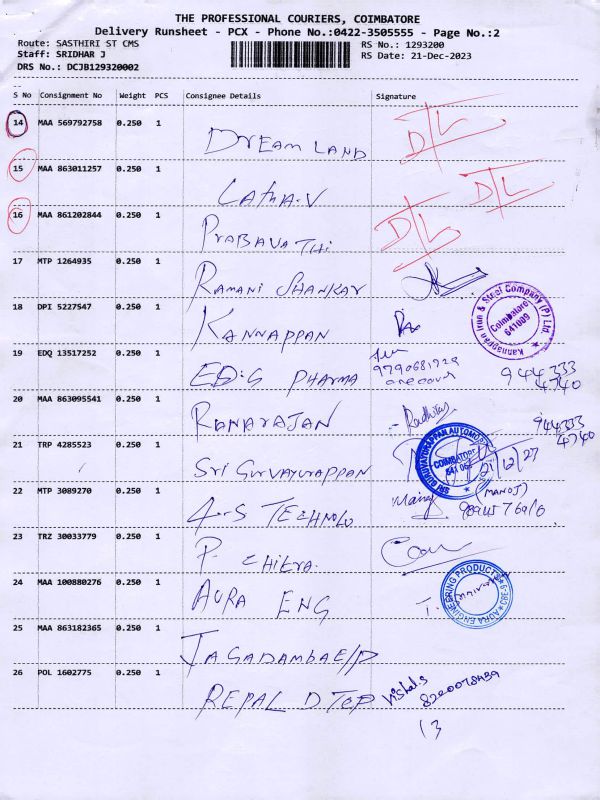 THE PROFESSIONAL COURIERS, COIMBATORE
Delivery Runsheet - PCX - Phone No.:0422-3505555 - Page No.:2
Route: SASTHIRI ST CMS
Staff: SRIDHAR J
DRS No.: DCJB129320002
RS No.: 1293200
RS Date: 21-Dec-2023
S No Consignment No Weight PCS Consignee Details Signature
14 MAA 569792758 0.250 1 DREAM LAND D/L
15 MAA 863011257 0.250 1 Latha.V D/L
16 MAA 861202844 0.250 1 PRABAVATHI D/L
17 MTP 1264935 0.250 1 RAMANI SHANKAR
18 DPI 5227547 0.250 1 KANNAPPAN
Kannappan Iron & Steel Company (P) Ltd.
Coimbatore
641009
19 EDQ 13517252 0.250 1 EDIS PHARMA
one cover
944333
4740
20 MAA 863095541 0.250 1 RANARAJAN
944333
4740
21 TRP 4285523 0.250 1 SRI GURVAYURAPPAN
COIMBATORE
21/12/27
22 MTP 3089270 0.250 1 4-S TECHNOLO
(MANOJ)
23 TRZ 30033779 0.250 1 P. CHITRA
24 MAA 100880276 0.250 1 AURA ENG
AURA ENGINEERING PRODUCTS
25 MAA 863182365 0.250 1 JAGADAMBAE/P
26 POL 1602775 0.250 1 REPAL D TEP
Vishal.S
13